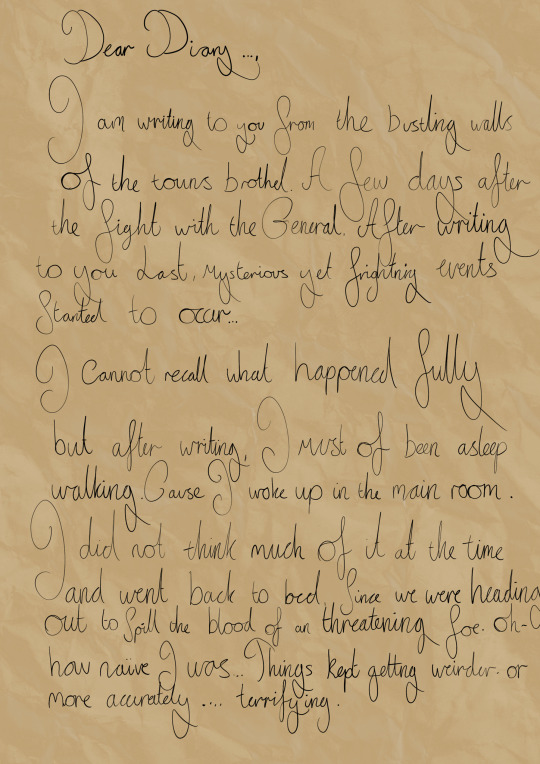 Dear Diary ...,
I am writing to you from the bustling walls
Of the touns brothel. A few days after
the fight with the General. After writing
to you Last, Mysterious yet frightnig events
Started to occur...
I Cannot recall what happened fully
but after writing, I must of been asleep
walking. Cause I woke up in the main room.
I did not think much of it at the time
and went back to bed, Since we were heading
out to spill the blood of an threatening foe. Oh-
how naïve I was... Things kept getting weirder. or
more accurately .... terrifying.